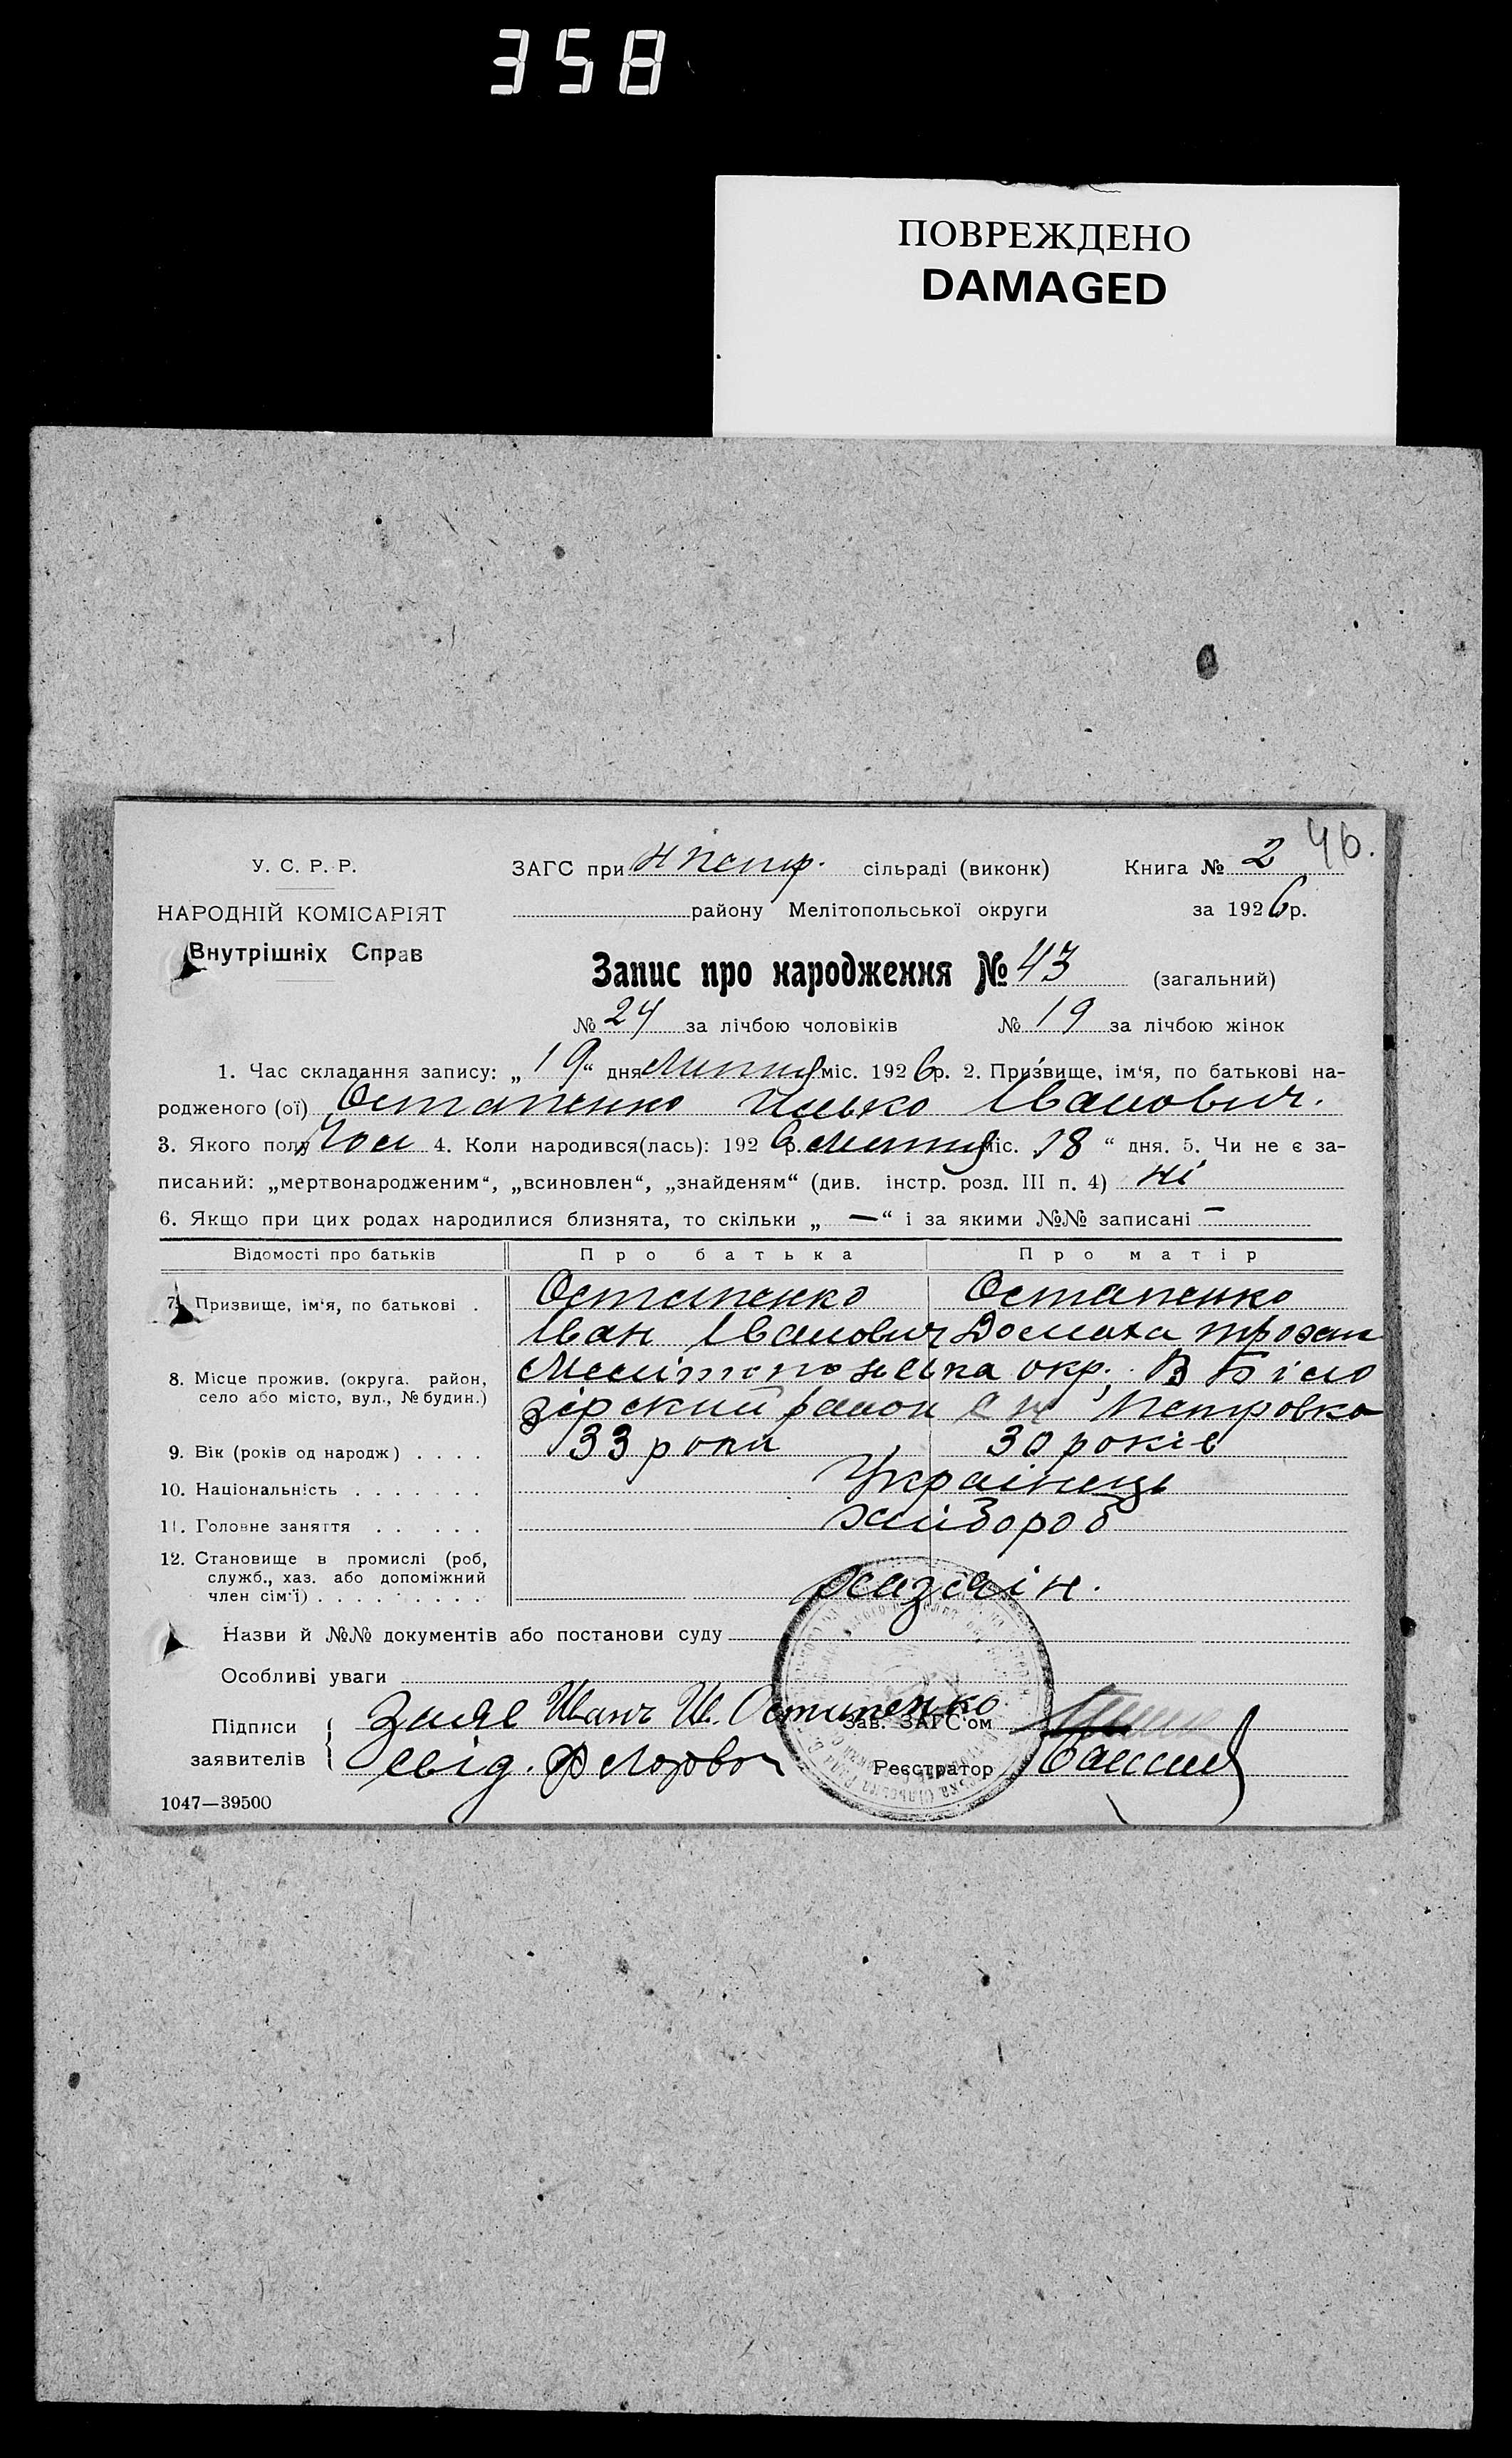 358
ПОВРЕЖДЕНО
DAMAGED
46.
У. С. Р. Р. ЗАГС при Н Петр. сільраді (виконк) Книга № 2
НАРОДНІЙ КОМІСАРІЯТ району Мелітопольської округи за 1926р.
Внутрішніх Справ
Запис про народження № 43 (загальний)
№ 24 за лічбою чоловіків № 19 за лічбою жінок
1. Час складання запису: „19“ дня липня міс. 1926р. 2. Призвище, ім‘я, по батькові на-
родженого (ої) Остапенко Илько Іванович.
3. Якого полу Чол 4. Коли народився(лась): 1926р. липня міс. 18 “ дня. 5. Чи не є за-
писаний: „мертвонародженим“, „всиновлен“, „знайденям“ (див. інстр. розд. III п. 4) ні
6. Якщо при цих родах народилися близнята, то скільки „ — “ і за якими №№ записані –
Відомості про батьків Про батька Про матір
7. Призвище, ім‘я, по батькові . Остапенко Остапенко
Іван Іванович Домаха
8. Місце прожив. (округа. район, Мелітопольська окр; В Біло
село або місто, вул., № будин.) зірский район Петровка
9. Вік (років од народж) . . . . 33 роки 30 років
10. Національність . . . . . . . Украінець
11. Головне заняття . . . . . хлібороб
12. Становище в промислі (роб,
служб., хаз. або допоміжний
член сім‘ї) . . . . . . . . . хазяін.
Назви й №№ документів або постанови суду
Особливі уваги
Підписи заявителів
Заяв Иванъ Ив. Остапенко Зав. ЗАГС‘ом
свід. Реєстратор
1047—39500